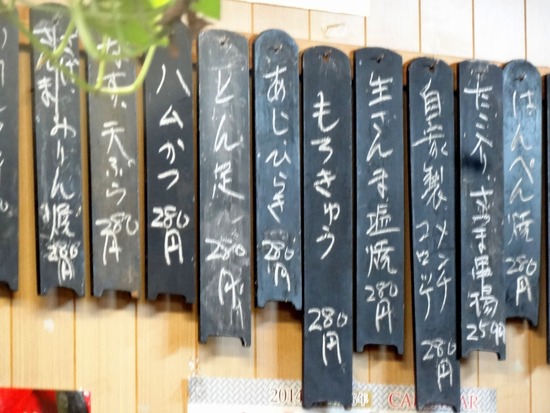 はんぺん焼 280円
たこ入りさつま串揚 250円
自家製メンチコロッケ 280円
生さんま塩焼 280円
もろきゅう 280円
あじひらき 280円
とん足 280円
ハムかつ 280円
天ぷら 280円
さんまみりん焼 280円
2014
CAL
AR